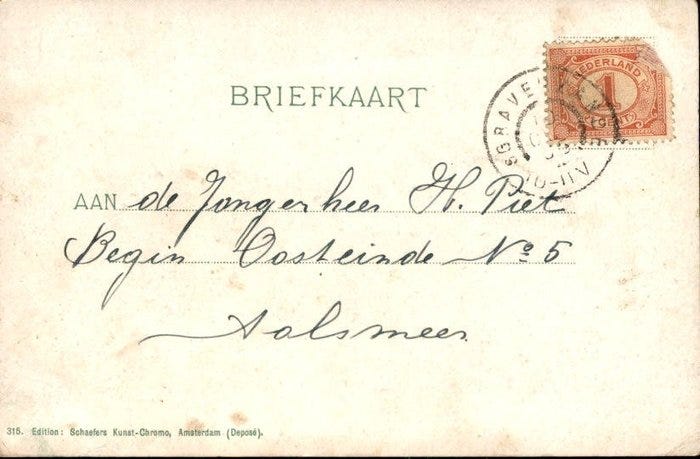 NEDERLAND
1
BRIEFKAART
SGRAVE
10-11V
AAN de Jongerheer H. Piet
Begin Oosteinde No 5
Aalsmeer
315. Edition: Schaefers Kunst-Chromo, Amsterdam (Deposé).